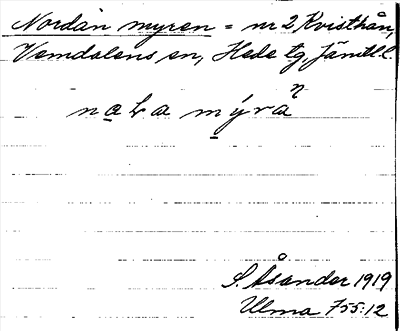 Nordån myren = nr 2 Kvisthån,
Vemdalens sn, Hede tg, Jämtl. l.
naka mýra ŋ
S. Åsander 1919
Ulma 755:12